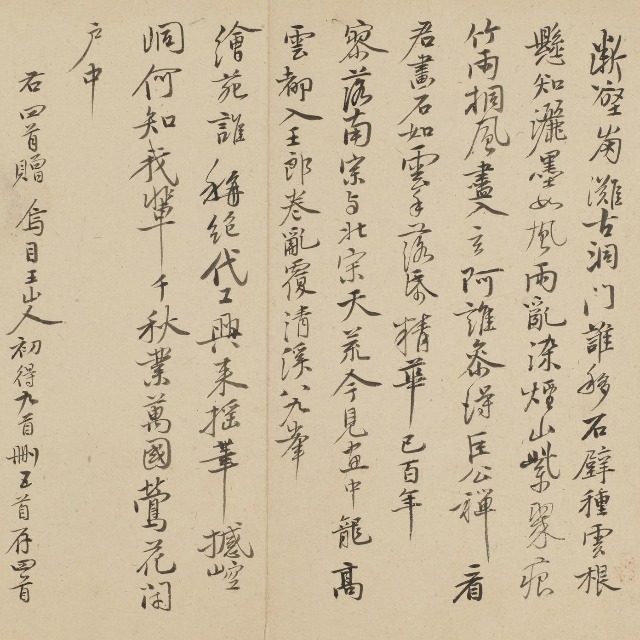 斷壑崩灘古洞門誰移石壁種雲根
懸知灑墨如風雨亂染煙山紫翠痕
竹雨桐風盡入玄阿誰參得巨公禪看
君畫石如雲手落紙精華已百年
寥落南宗与北宗天荒今見畫中龍高
雲都入王郎卷亂覆清溪八九峯
繪苑誰稱絕代工興來搖筆撼崆
峒何知我輩千秋業萬國鶯花閉
戶中
右四首贈烏目王山人初得九首刪五首存四首